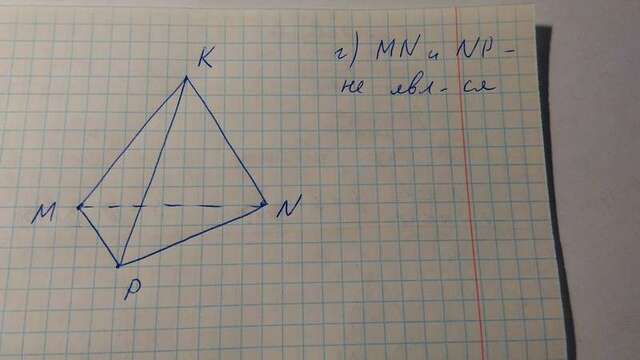 K
г) MN и NP -
не явл-ся
M
N
P